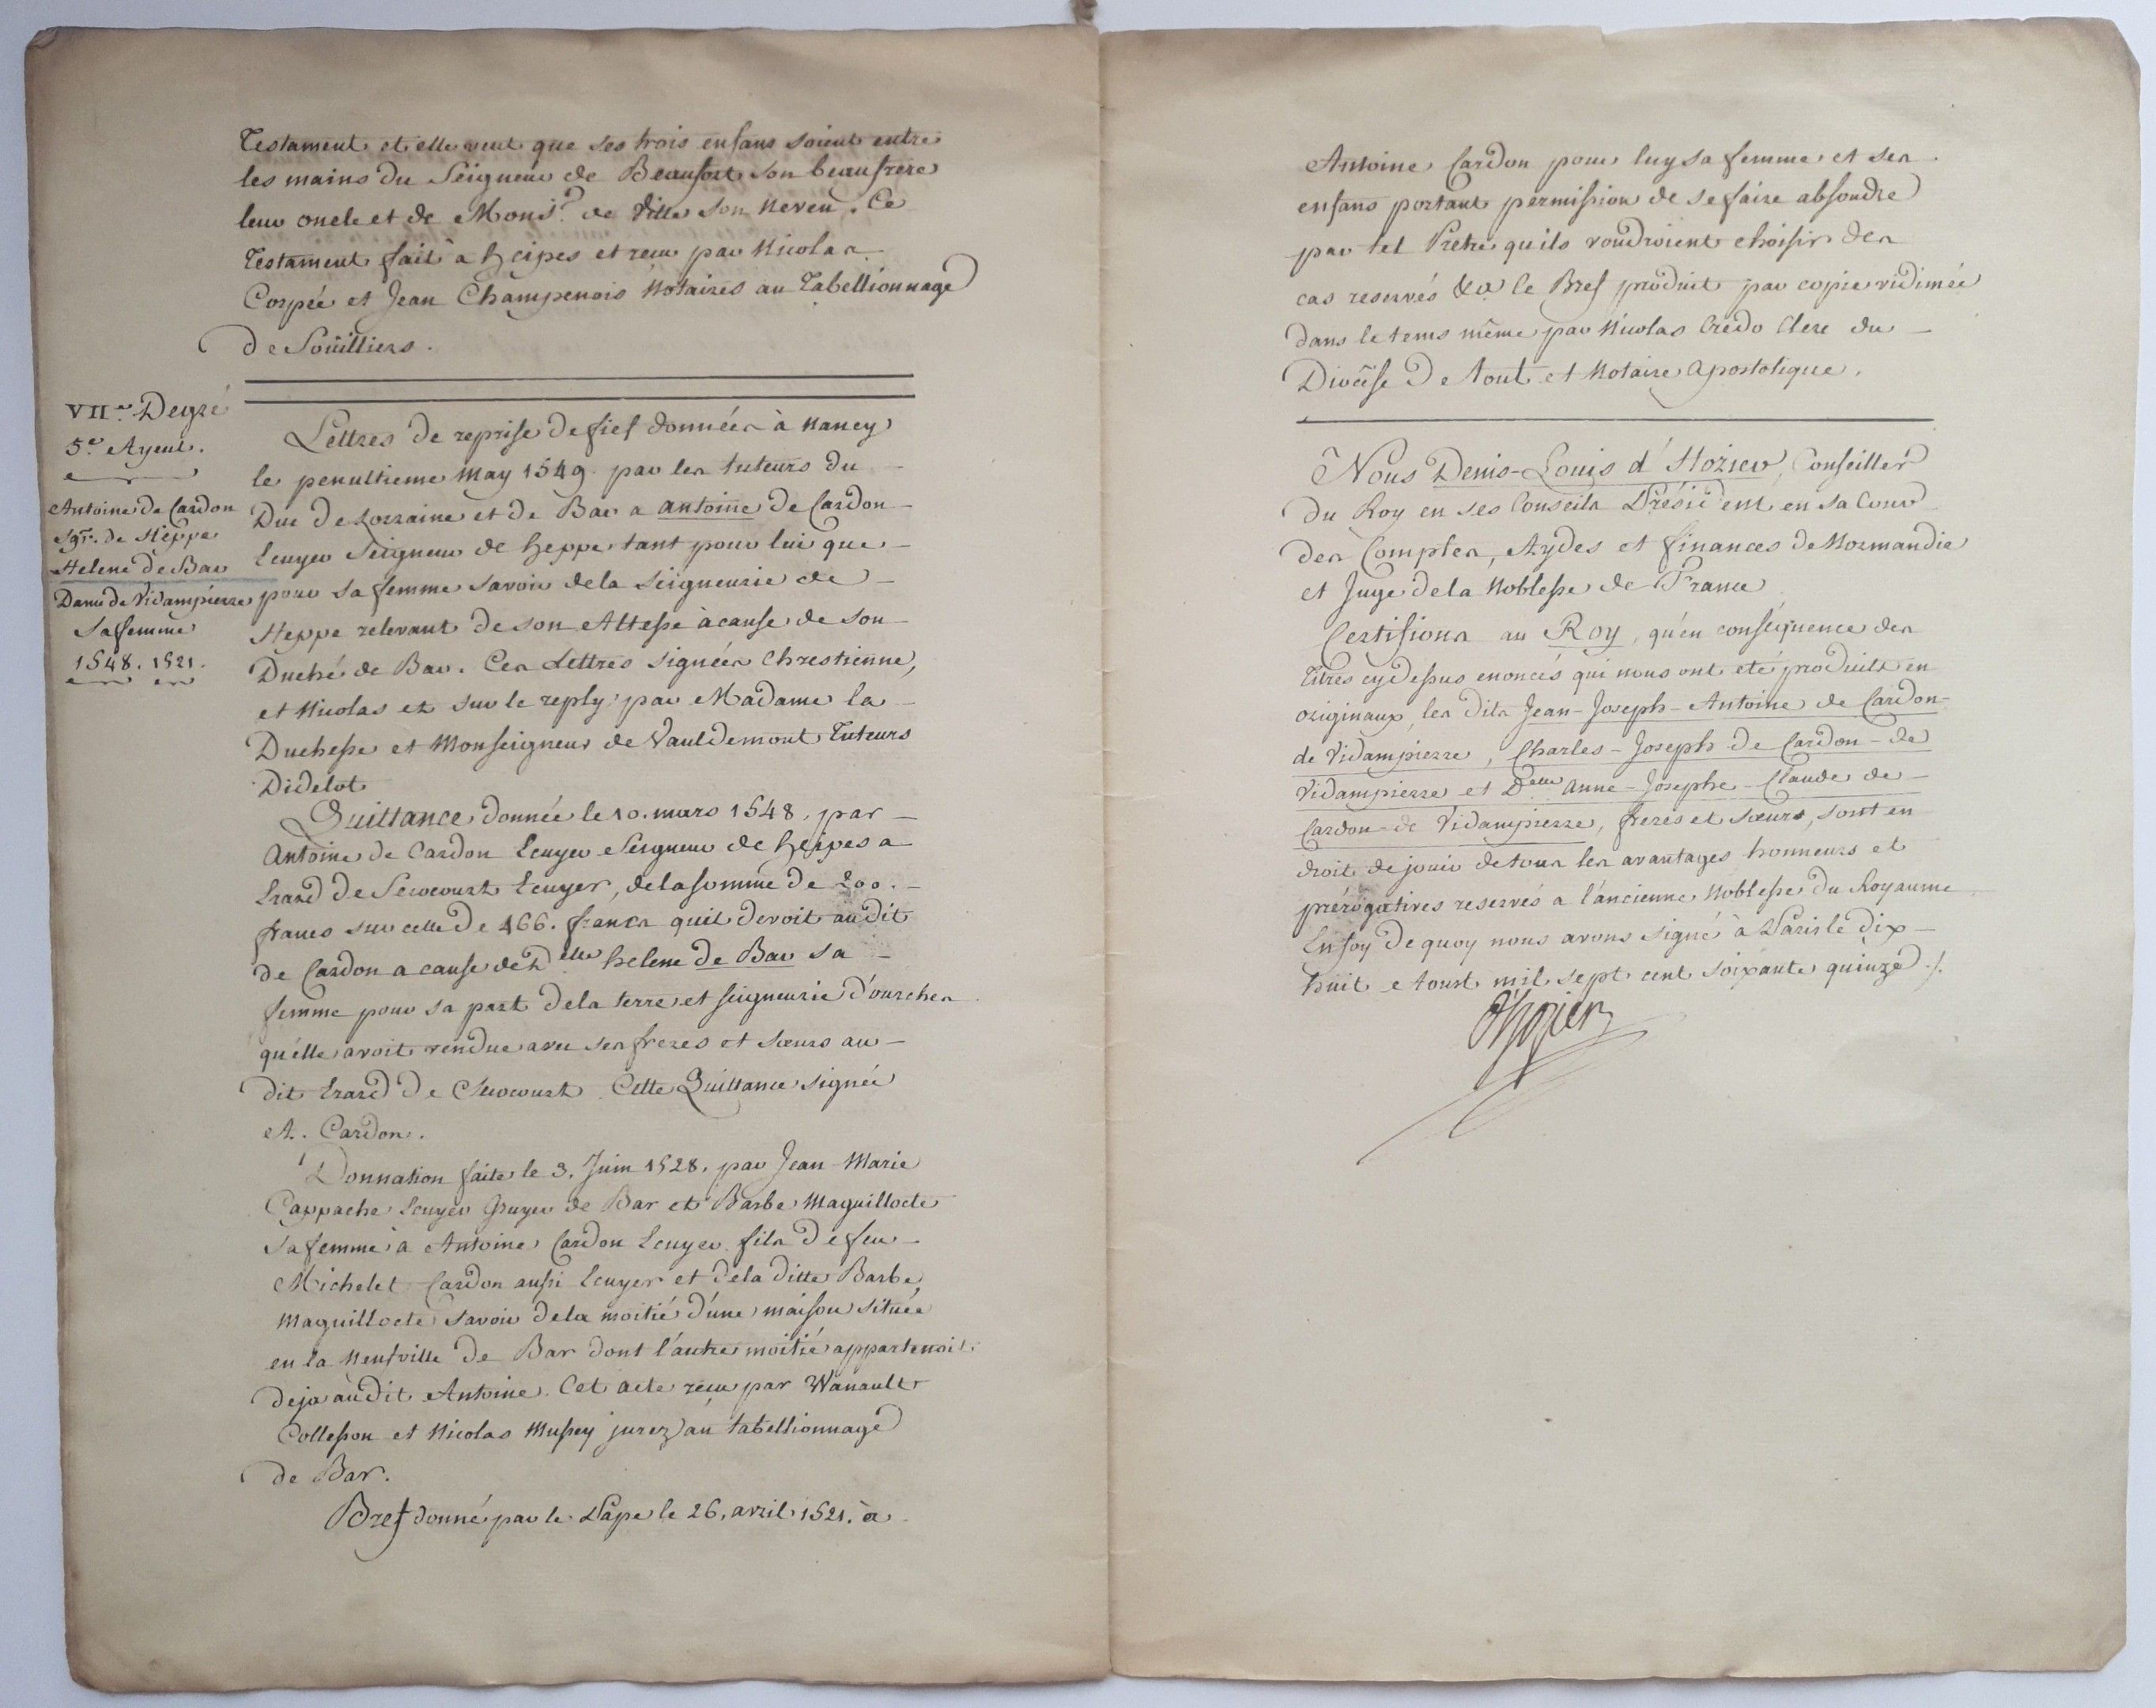 Testament et elle veut que ses trois enfans soient entre
les mains du Seigneur de Beaufort son beaufrere
leur oncle et de Mons.r de Ville son Neveu. Ce
Testament fait à heipes et recu par Nicolas
Corpée et Jean Champenois Notaires au Tabellionnage
de Soüilliers.
VII.e Degré
5.e Ayeul.
Antoine de Cardon
Sgr. de Heppe
Helene de Bar
Dame de Vidampierre
Sa femme
1548. 1521.
Lettres de reprise de fief données à Nancy
le penultieme May 1549. par les tuteurs du
Duc de Lorraine et de Bar a antoine de Cardon
Ecuyer Seigneur de heppe tant pour lui que
pour sa femme savoir de la Seigneurie de
Heppe relevant de son Altesse à cause de son
Duché de Bar. Ces Lettres signées Chrestienne,
et Nicolas et sur le reply par Madame la
Duchesse et Monseigneur de Vauldemont Tuteurs
Didelot
Quittance donnée le 10. mars 1548. par
Antoine de Cardon Ecuyer Seigneur de heipes a
Erard de Serocourt Ecuyer, de la somme de 200.
francs sur celle de 466. francs quil devoit audit
de Cardon a cause de Delle helene de Bar sa
femme pour sa part de la terre et seigneurie d'ourches
qu'elle avoit vendue avec ses freres et sœurs au
dit Erard de Serocourt. Cette Quittance signée
A. Cardon.
Donnation faite le 3. Juin 1528. par Jean Marie
Cappache Ecuyer Gruyer de Bar et Barbe Maguillocte
sa femme à Antoine Cardon Ecuyer fils de feu
Michelet Cardon aussi Ecuyer et de la ditte Barbe
Maguillocte savoir de la moitié d'une maison située
en la Neufville de Bar dont l'autre moitié appartenoit
deja audit Antoine. Cet acte recu par Wanault
Collesson et Nicolas Mussey jurez au tabellionnage
de Bar.
Bref donné par le Pape le 26. avril 1521. à
Antoine Cardon pour luy sa femme et ses
enfans portant permission de se faire absoudre
par tel Pretre qu'ils voudroient choisir des
cas reservés &a le Bref produit par copie vidimée
dans le tems même par Nicolas Credo Clerc du
Diocèse de Toul et Notaire Apostolique.
Nous Denis-Louis d'Hozier, Conseiller
du Roy en ses Conseils Président en sa Cour
des Comptes, Aydes et finances de Normandie
et Juge de la Noblesse de France
Certifions au Roy, qu'en conséquence des
Titres cydessus enoncés qui nous ont eté produits en
originaux, les dits Jean-Joseph-Antoine de Cardon-
de Vidampierre, Charles-Joseph de Cardon-de
Vidampierre et Delle Anne-Josephe-Claude de
Cardon-de Vidampierre, freres et sœurs, sont en
droit de jouir de tous les avantages honneurs et
prérogatives reservés a l'ancienne Noblesse du Royaume
En foy de quoy nous avons signé à Paris le dix
huit Aoust mil sept cent soixante quinze ./.
d'hozier